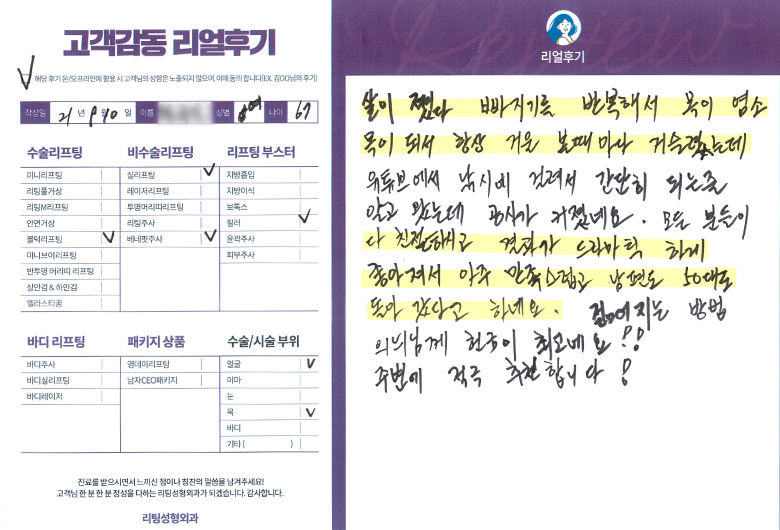 고객감동 리얼후기
해당 후기 온/오프라인에 활용 시 고객님의 성함은 노출되지 않으며, 이에 동의 합니다(EX. 김OO님의 후기)
작성일 21년 9월 10일 이름 성별 여 나이 67
수술리프팅
미니리프팅
리팅풀거상
리팅M리프팅
안면거상
볼턱리프팅
미니브이리프팅
반투명 머리띠 리프팅
상안검 & 하안검
엘라스티꿈
비수술리프팅
실리프팅
레이저리프팅
투명머리띠리프팅
리팅주사
베네핏주사
리프팅 부스터
지방흡입
지방이식
보톡스
필러
윤곽주사
피부주사
바디 리프팅
바디주사
바디실리프팅
바디레이저
패키지 상품
영데이리프팅
남자CEO패키지
수술/시술 부위
얼굴
이마
눈
목
바디
기타 ( )
진료를 받으시면서 느끼신 점이나 칭찬의 말씀을 남겨주세요!
고객님 한 분 한 분 정성을 다하는 리팅성형외과가 되겠습니다. 감사합니다.
리팅성형외과
Review
리얼후기
살이 쪘다 빠지기를 반복해서 목이 염소
목이 되서 항상 거울 볼때마다 거슬렸는데
유튜브에서 낚시에 걸려서 간단히 되는줄
알고 왔는데 공사가 커졌네요. 모든 분들이
다 친절하시고 결과가 드라마틱 하게
좋아져서 아주 만족스럽고 남편도 50대로
돌아 갔다고 하네요. 젊어지는 방법
의느님께 한국이 최고네요!!
주변에 적극 추천합니다!